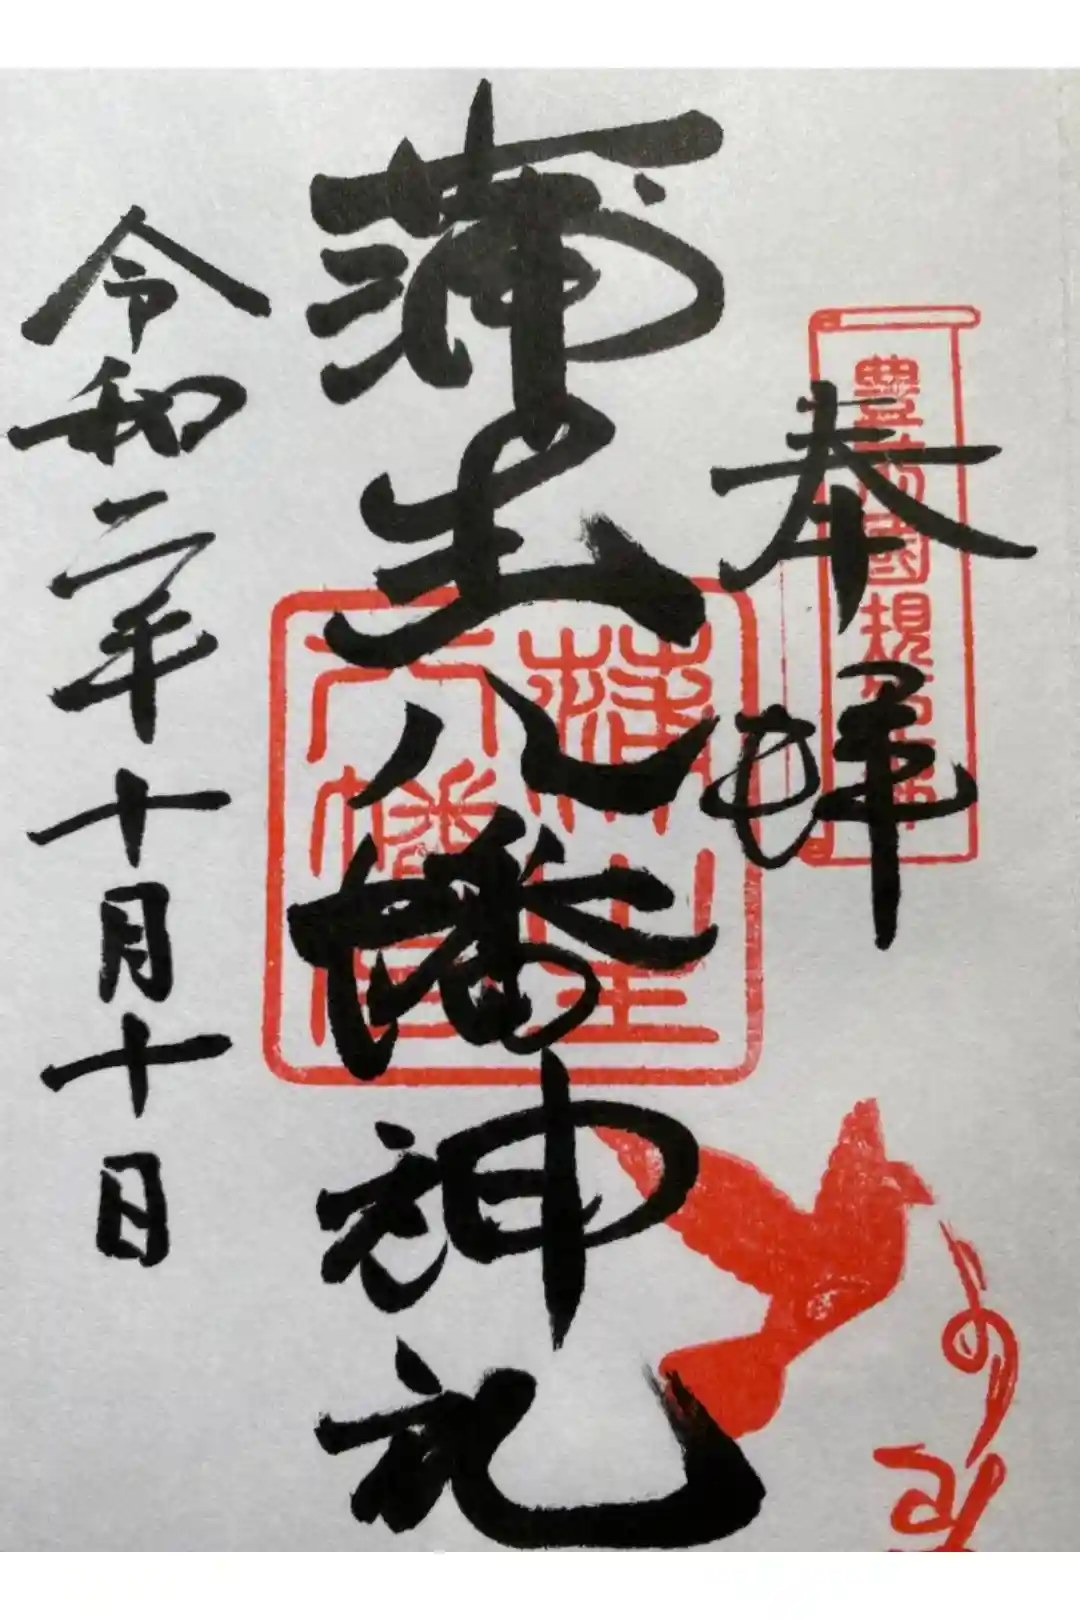 奉拝
豊前國規
蒲生八幡神社
蒲生
八幡宮
令和二年十月十日